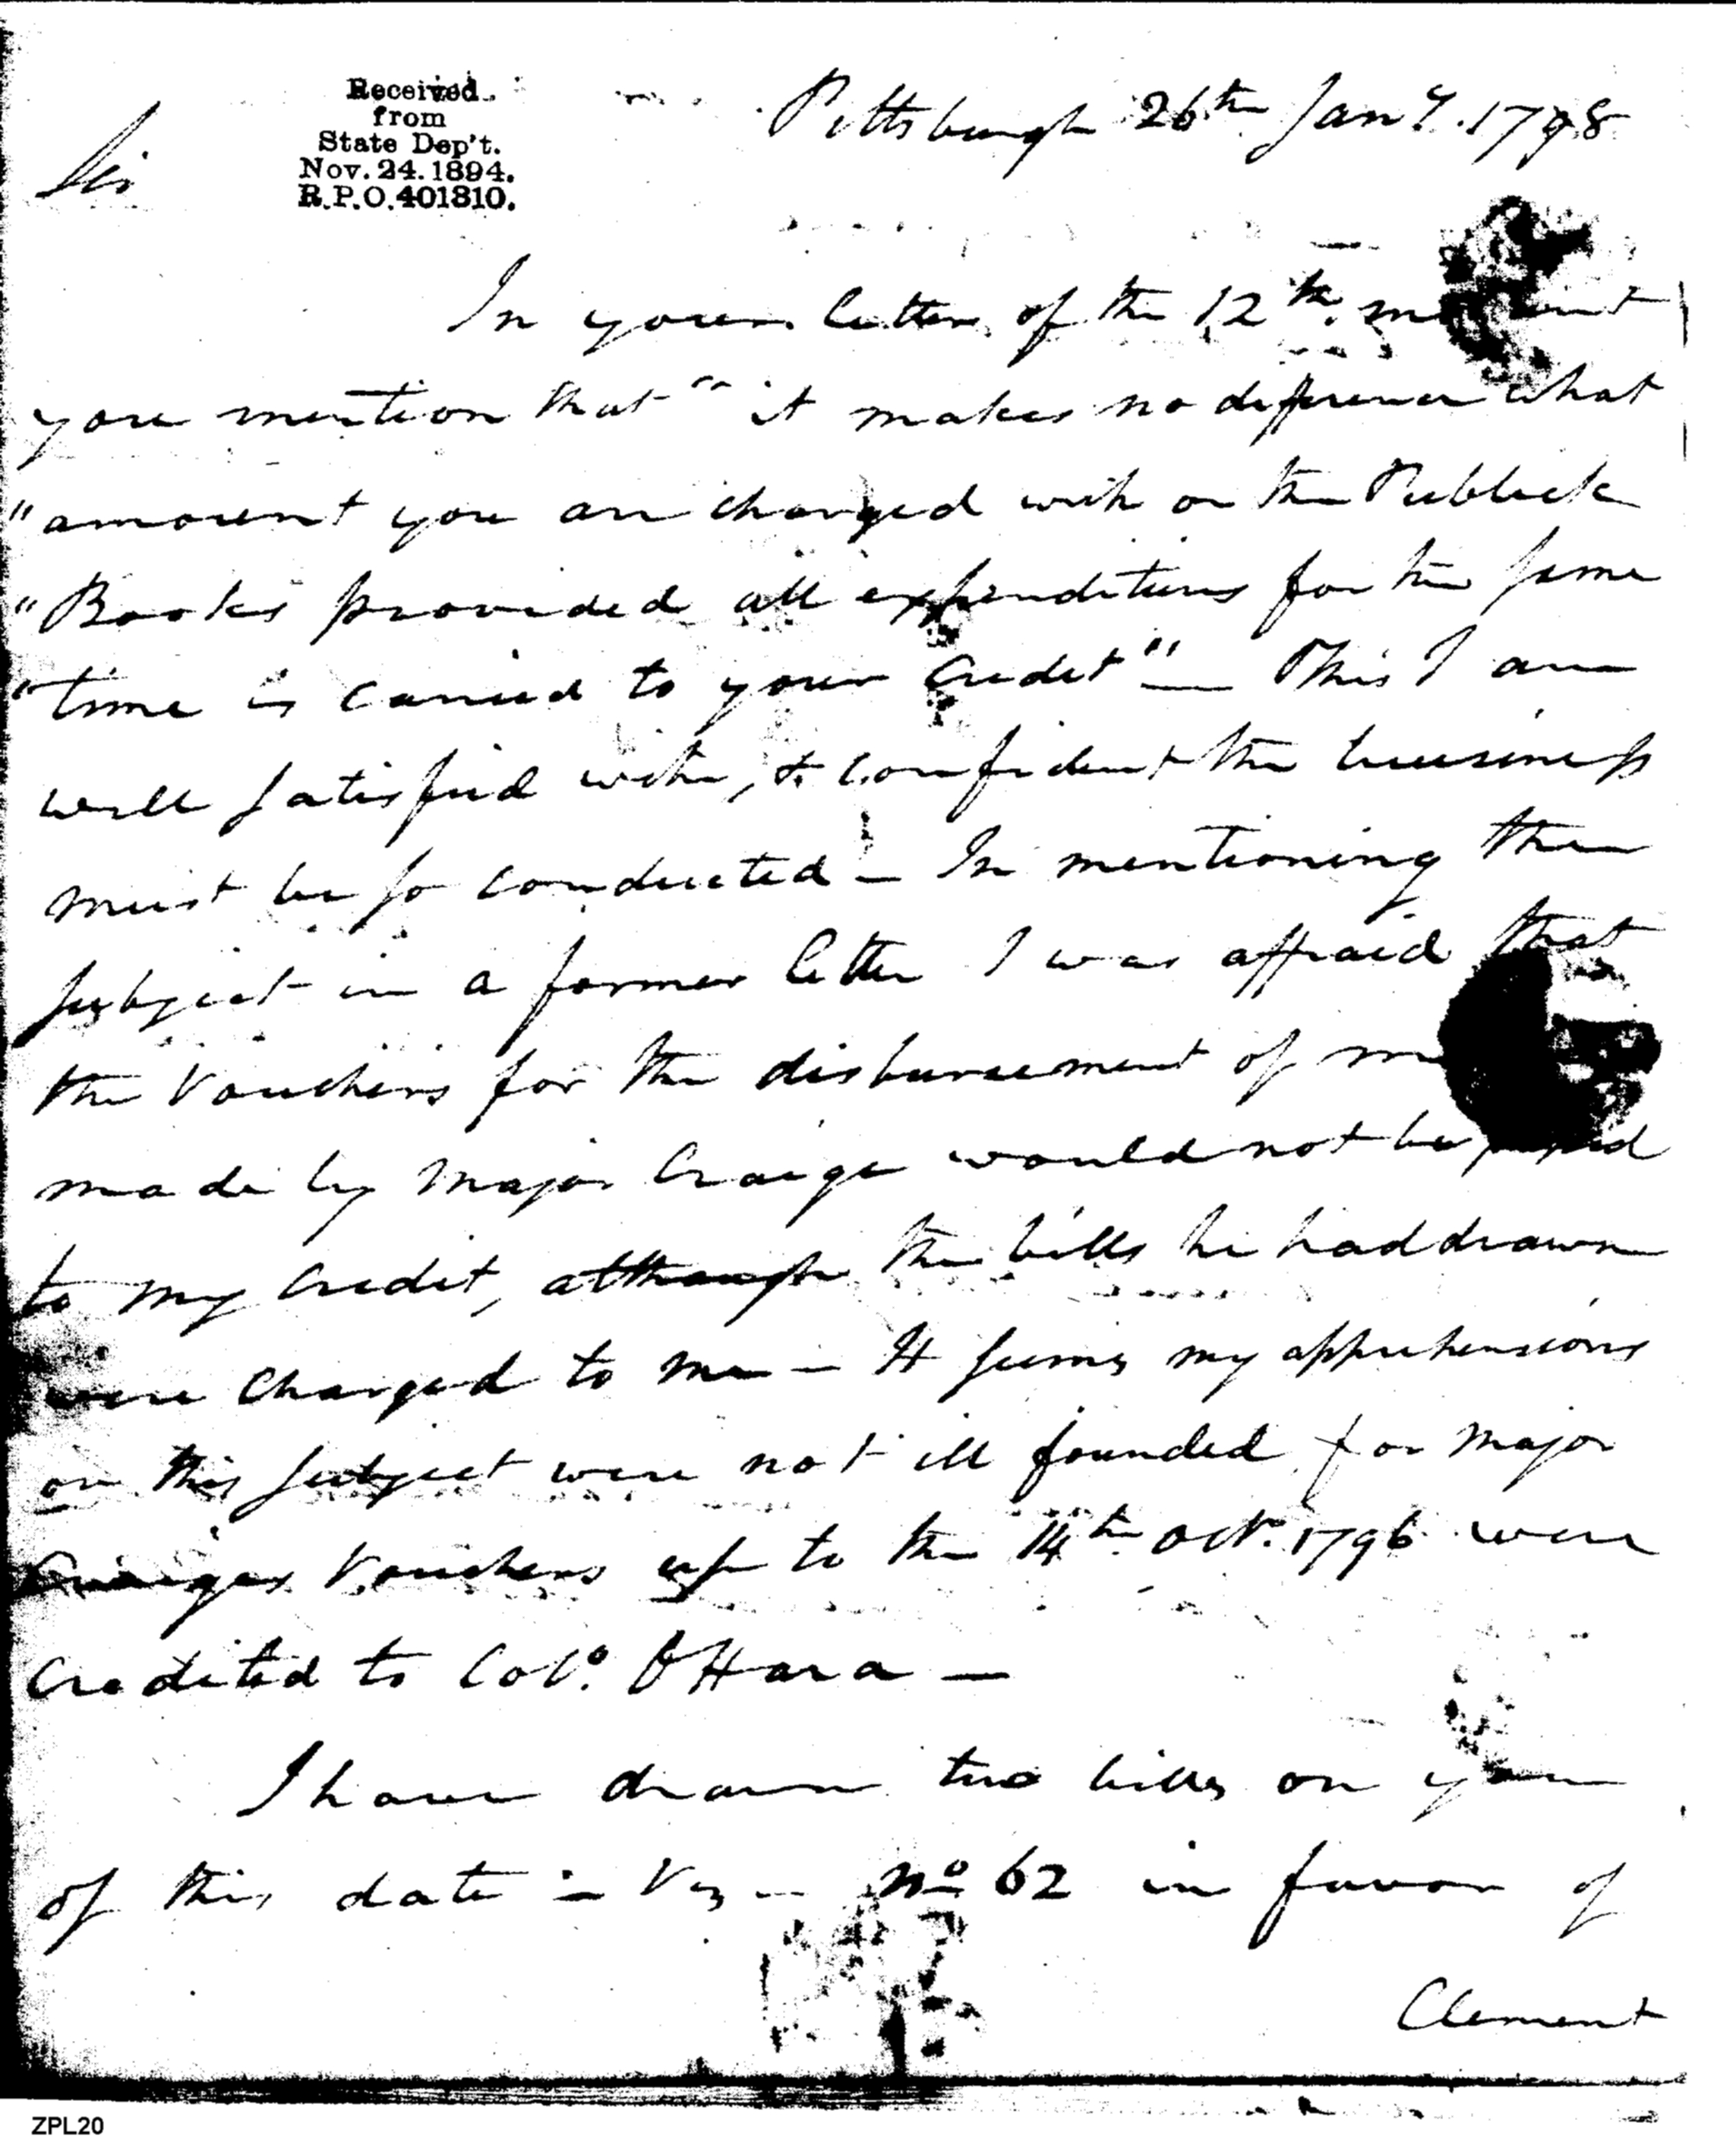 Received
from
State Dep't.
Nov. 24. 1894.
R.P.O. 401310.
Pittsburgh 26th Jany. 1798
Sir
In your letter of the 12th
you mention that " it makes no difference what
" amount you are charged with on the Publick
" Books provided all expenditures for the same
" time is carried to your credit" — This I am
well satisfied with, & confident the business
must be so conducted — In mentioning the
subject in a former letter I was affraid that
the Vouchers for the disbursement of
made by Major Craige would not be
to my credit, although the bills he had drawn
were charged to me — It seems my apprehensions
on this subject were not ill founded for Major
Craiges Vouchers up to the 14th Oct. 1796 were
Credited to Colo. OHara —
I have drawn two bills on you
of this date — Viz — No 62 in favor of
Clement
ZPL20